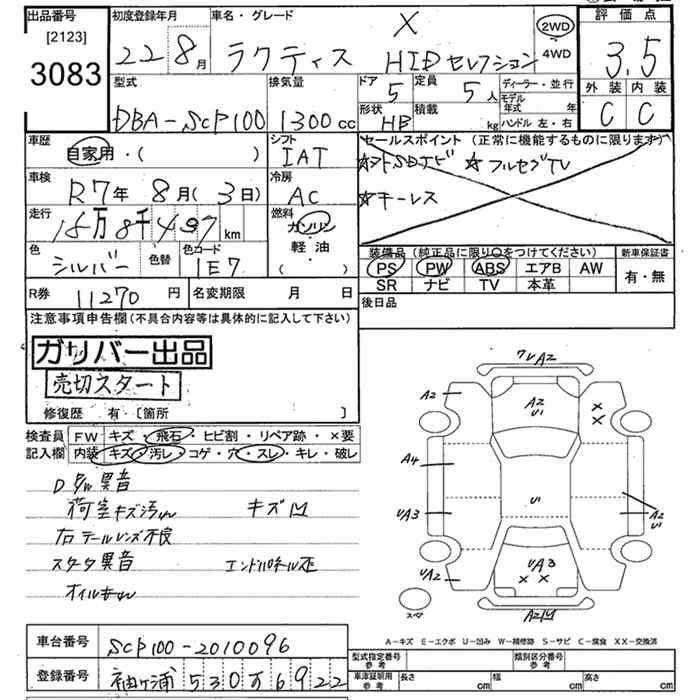 出品番号 [2123] 3083
初度登録年月 22 8月
車名・グレード ラクティス X HIDセレクション
2WD・4WD
評価点 3.5
外装 C 内装 C
型式 DBA-SCP100
排気量 1300cc
ドア 5 定員 5人
形状 HB 積載 kg
ディーラー・並行
モデル年式 年
ハンドル 左・右
車歴 自家用・( )
シフト IAT
セールスポイント（正常に機能するものに限ります）
☆フルセグTV
☆キーレス
車検 R7年 8月(3日)
冷房 AC
走行 km
燃料 ガソリン・軽油・( )
色 シルバー 色替 色コード 1E7
装備品（純正品に限り〇をつけてください） 新車保証書
PS PW ABS エアB AW 有・無
SR ナビ TV 本革
R券 11270円 名変期限 月 日
後日品
注意事項申告欄（不具合内容等は具体的に記入して下さい）
ガリバー出品
売切スタート
修復歴 有・〔箇所 〕
検査員記入欄 FW キズ・飛石・ヒビ割・リペア跡・×要
内装 キズ・汚レ・コゲ・穴・スレ・キレ・破レ
異音
荷室キズ汚レ キズ凹
右テールレンズ不良
スタータ異音 エンドパネル歪
7 U A2
A2
A2 U1
× ×
A4
UA3
U1
A2 U1
UA2
UA3
× ×
スペア
A-キズ E-エクボ U-凹み W-補修跡 S-サビ C-腐食 XX-交換済
車台番号 SCP100-2010096
型式指定番号 参考 類別区分番号 参考
登録番号 袖ヶ浦 530 6922
車庫証明用 参考 長さ cm 幅 cm 高さ cm